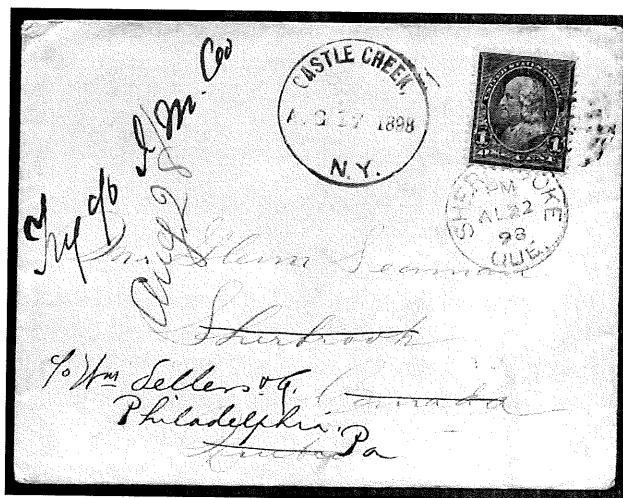 CASTLE CREEK,
AUG 17 1898
N.Y.
1 1
SHERBROOKE
PM
AU 22
98
QUE.
Try c/o I. M. Co
Aug 28
Mr. Glenn Seaman
Sherbrook
Canada
c/o Wm Sellers & Co.
Philadelphia, Pa